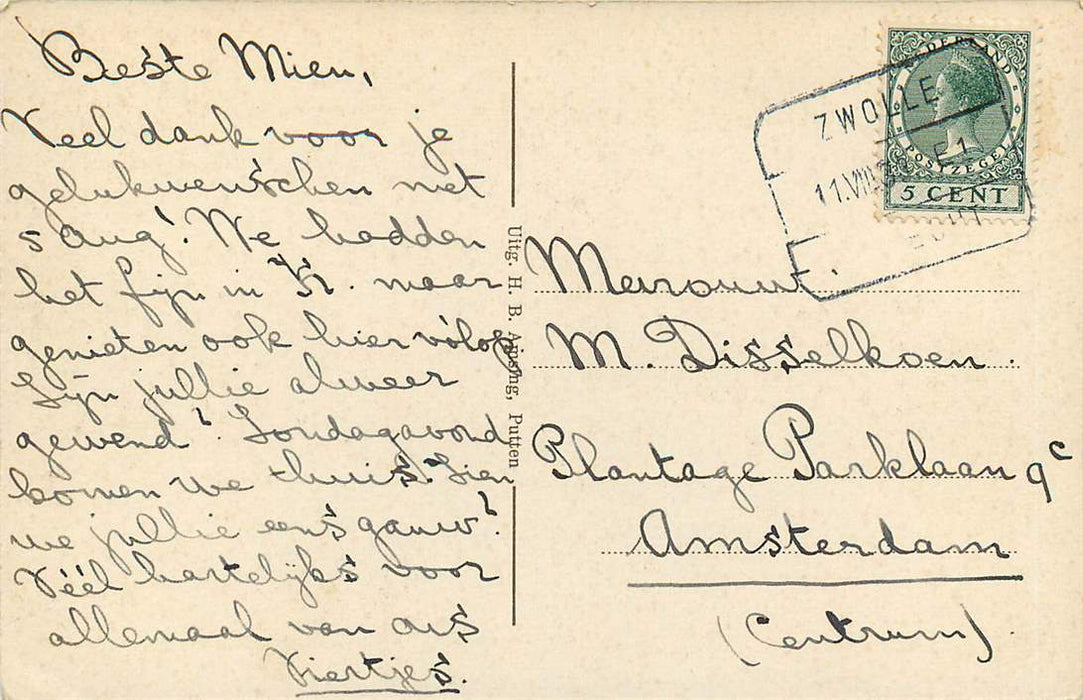 Beste Mien,
Veel dank voor je
gelukwenschen met
5 Aug! We hadden
het fijn in Z. maar
genieten ook hier volop
Zijn jullie alweer
gewend? Zondagavond
komen we thuis. Zien
we jullie eens gauw?
Véél hartelijks voor
allemaal van ons
Viertjes.
Uitg. H. B. Appsing, Putten
NEDERLAND
POSTZEGEL
5 CENT
ZWOLLE
11.VIII E1
Mejouw.
M. Disselkoen.
Plantage Parklaan 9c
Amsterdam
(Centrum)